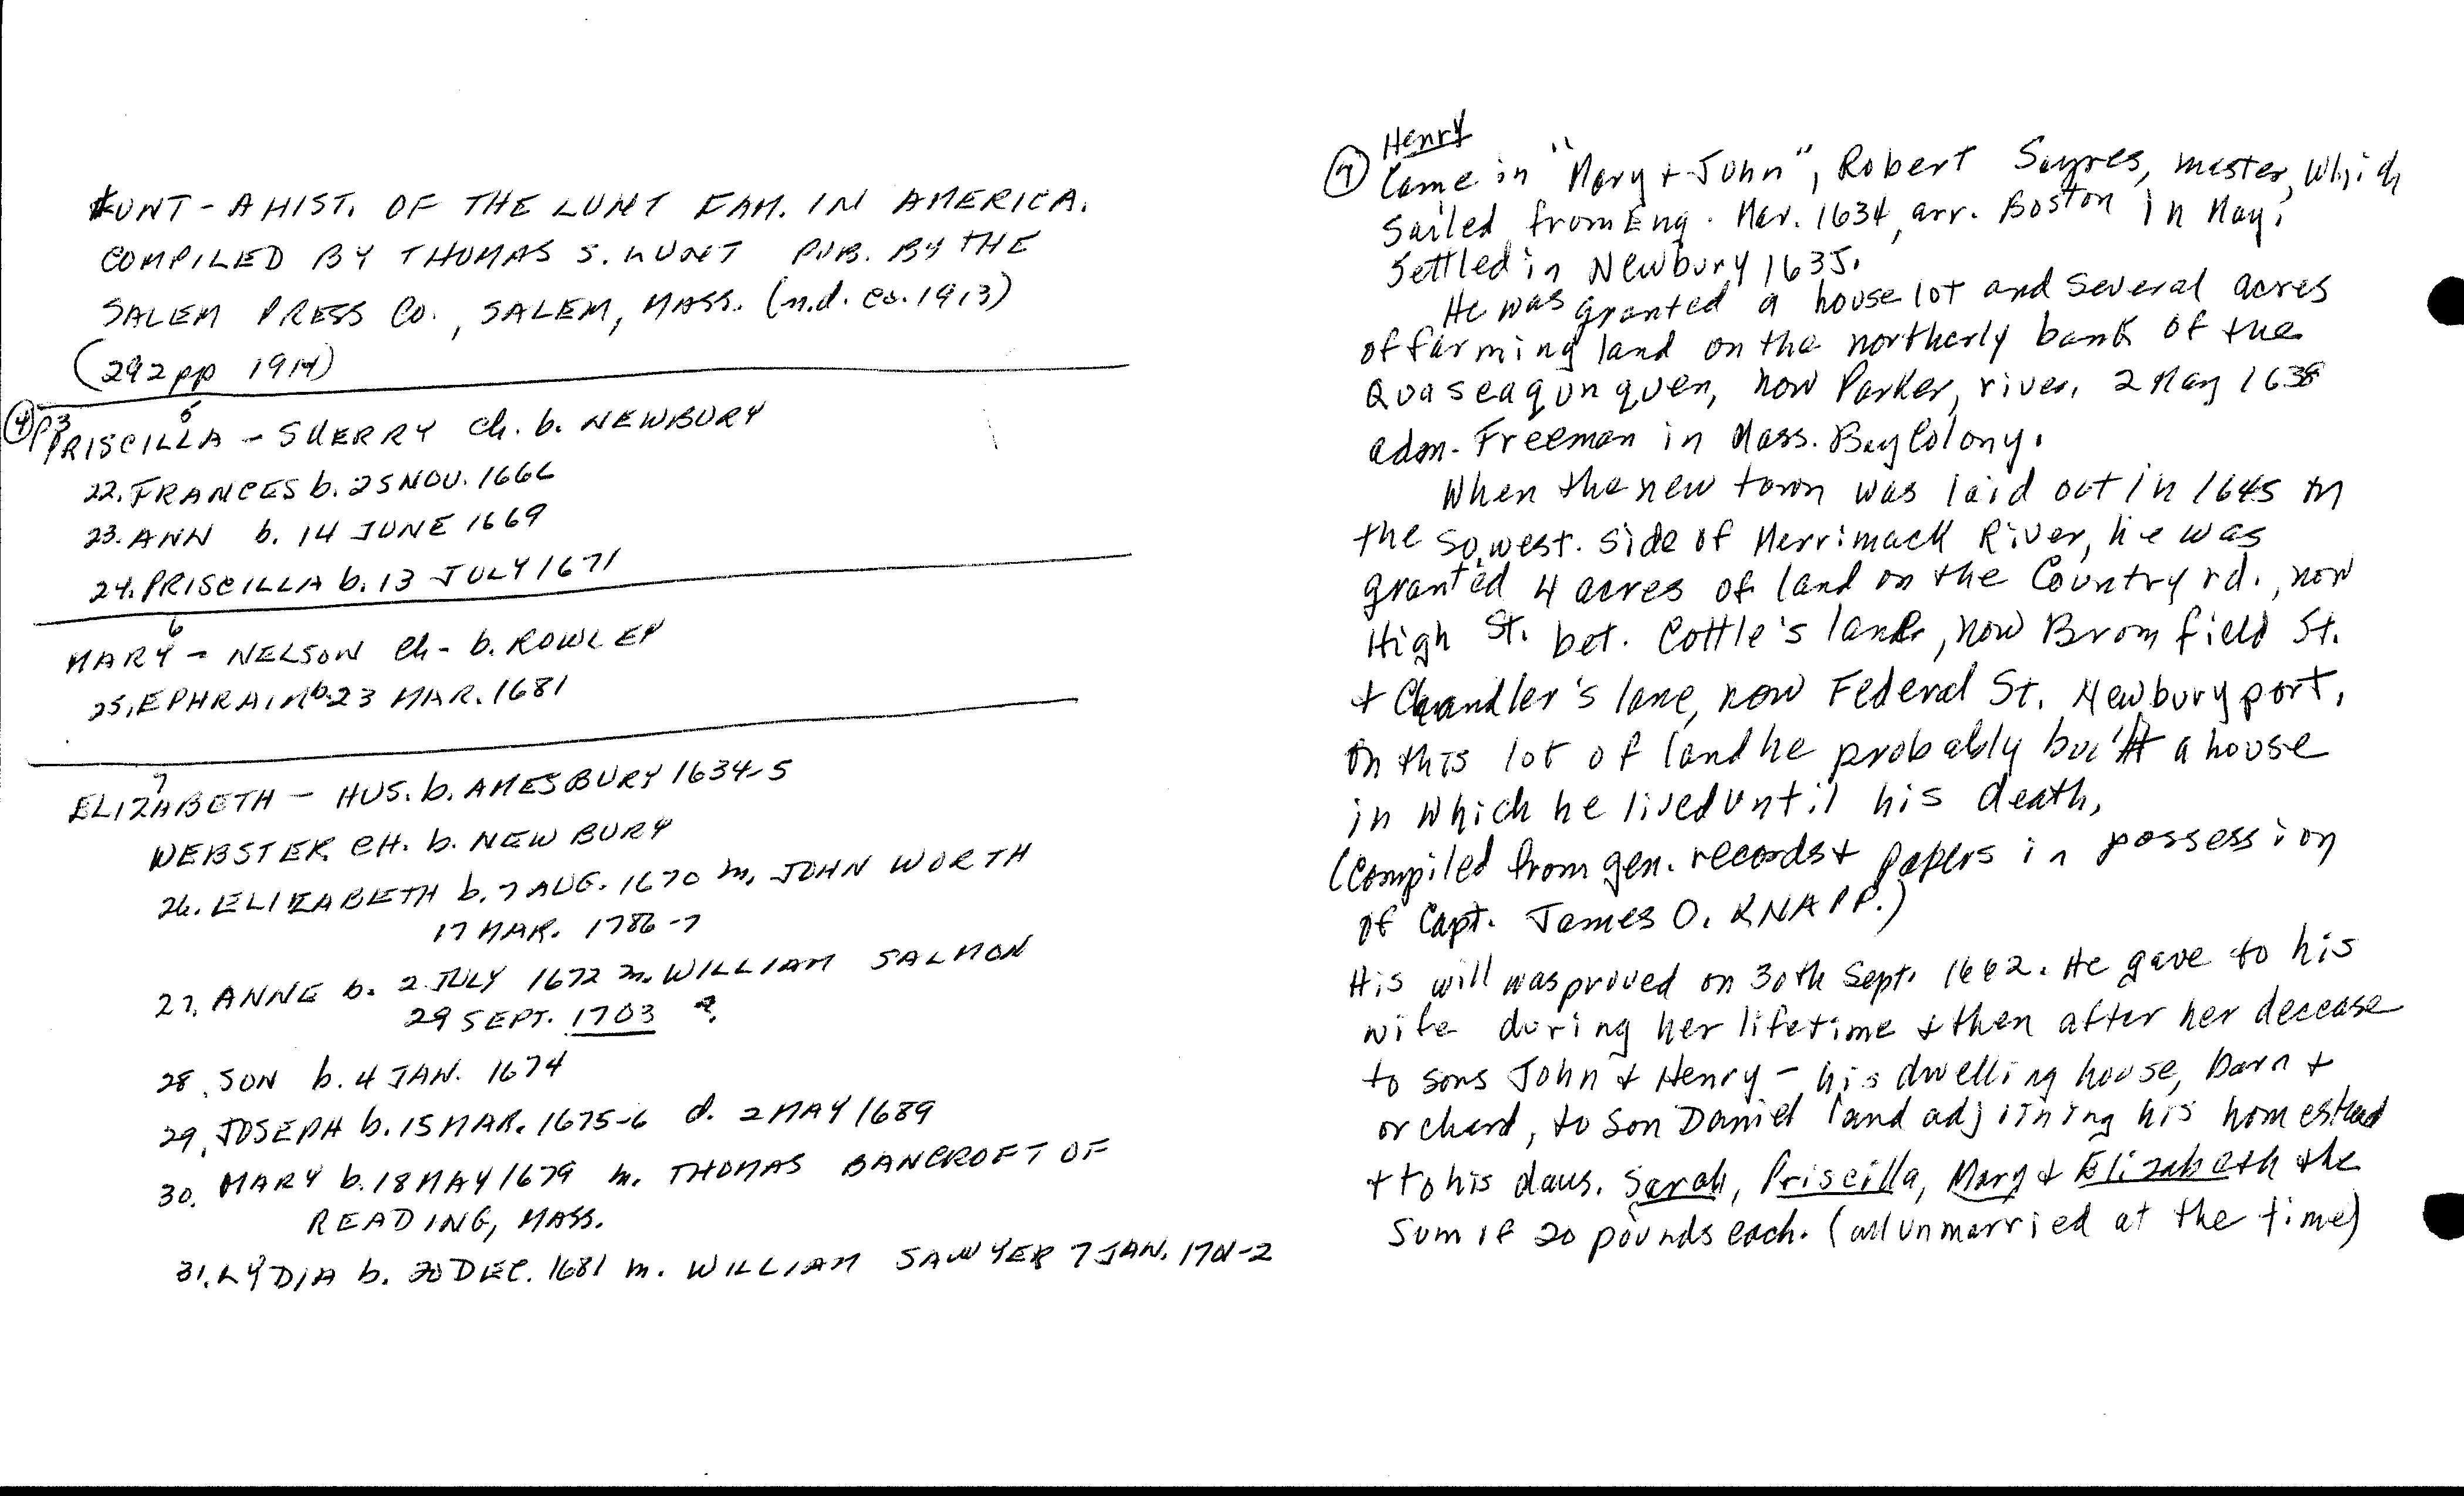 LUNT - A HIST. OF THE LUNT FAM. IN AMERICA.
COMPILED BY THOMAS S. LUNT PUB. BY THE
SALEM PRESS CO., SALEM, MASS. (n.d. ca. 1913)
(292 pp 1914)
④ P3
5
PRISCILLA - SHERRY ch. b. NEWBURY
22. FRANCES b. 25 NOV. 1666
23. ANN b. 14 JUNE 1669
24. PRISCILLA b. 13 JULY 1671
6
MARY - NELSON Ch - b. ROWLEY
25. EPHRAIM b. 23 MAR. 1681
7
ELIZABETH - HUS. b. AMESBURY 1634-5
WEBSTER CH. b. NEWBURY
26. ELIZABETH b. 7 AUG. 1670 m. JOHN WORTH
17 MAR. 1786-7
27. ANNE b. 2 JULY 1672 m. WILLIAM SALMON
29 SEPT. 1703 ?
28. SON b. 4 JAN. 1674
29. JOSEPH b. 15 MAR. 1675-6 d. 2 MAY 1689
30. MARY b. 18 MAY 1679 m. THOMAS BANCROFT OF
READING, MASS.
31. LYDIA b. 20 DEC. 1681 m. WILLIAM SAWYER 7 JAN. 1701-2
Henry
① Came in "Mary + John", Robert Sayres, master, which
sailed from Eng. Mar. 1634, arr. Boston in May.
Settled in Newbury 1635.
He was granted a house lot and several acres
of farming land on the northerly bank of the
Quaseaqunquen, now Parker, river. 2 May 1638
adm. Freeman in Mass. Bay Colony.
When the new town was laid out in 1645 on
the so. west. side of Merrimack River, he was
granted 4 acres of land on the Country rd., now
High St. bet. Cottle's lane, now Bromfield St.
+ Chandler's lane, now Federal St. Newburyport.
On this lot of land he probably built a house
in which he lived until his death,
(Compiled from gen. records + papers in possession
of Capt. James O. KNAPP.)
His will was proved on 30th Sept. 1662. He gave to his
wife during her lifetime + then after her decease
to sons John + Henry - his dwelling house, barn +
orchard, to son Daniel land adjoining his homestead
+ to his daus. Sarah, Priscilla, Mary + Elizabeth the
sum of 20 pounds each. (all unmarried at the time)